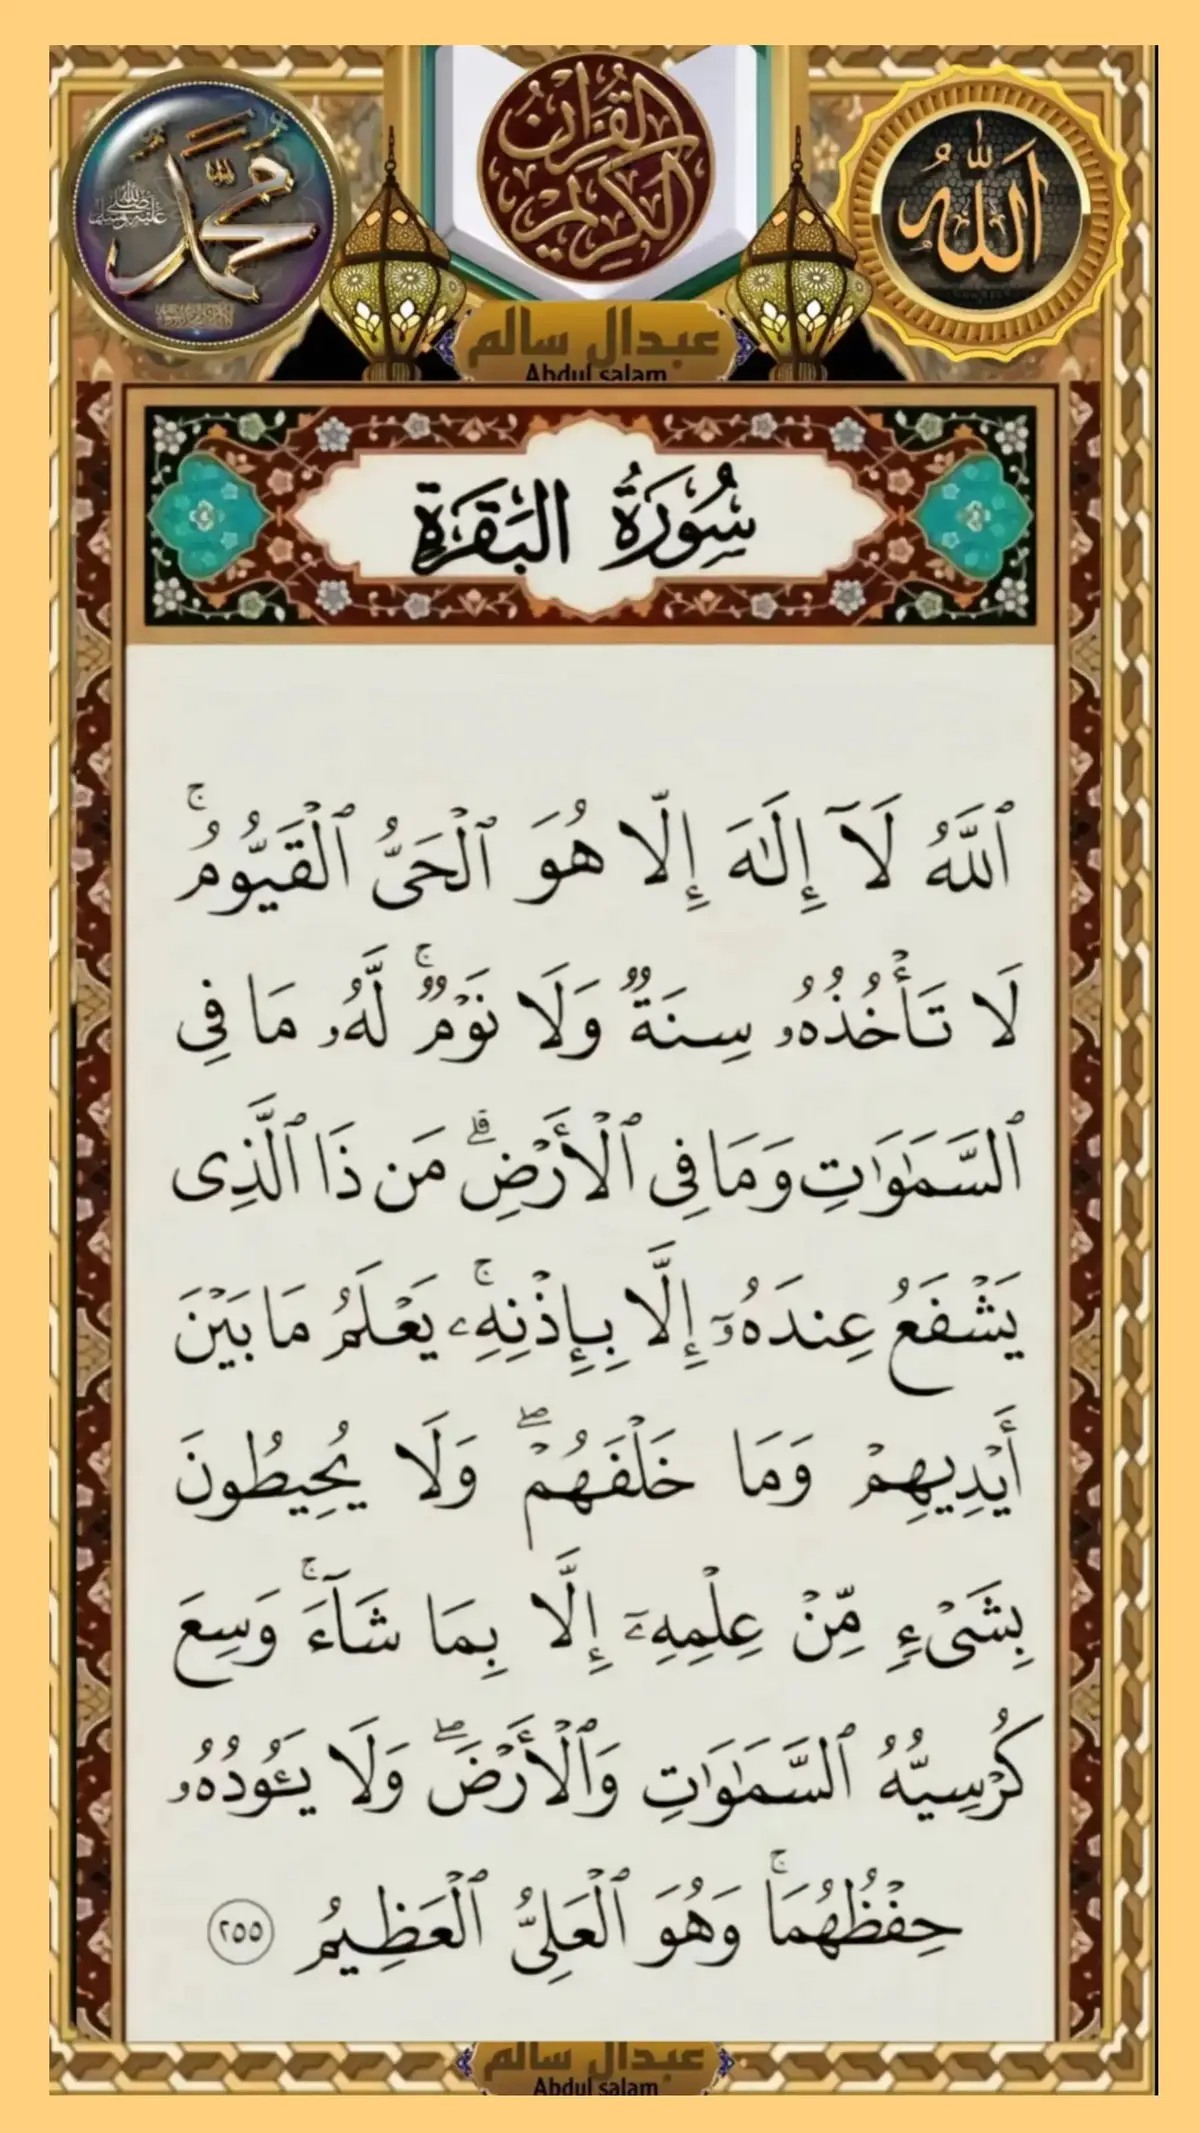 محمد
صلى الله عليه وسلم
القرآن الكريم
الله
عبدال سالم
Abdul salam
سُورَةُ البَقَرَةِ
ٱللَّهُ لَآ إِلَٰهَ إِلَّا هُوَ ٱلْحَىُّ ٱلْقَيُّومُ ۚ
لَا تَأْخُذُهُۥ سِنَةٌ وَلَا نَوْمٌ ۚ لَّهُۥ مَا فِى
ٱلسَّمَٰوَٰتِ وَمَا فِى ٱلْأَرْضِ ۗ مَن ذَا ٱلَّذِى
يَشْفَعُ عِندَهُۥٓ إِلَّا بِإِذْنِهِۦ ۚ يَعْلَمُ مَا بَيْنَ
أَيْدِيهِمْ وَمَا خَلْفَهُمْ ۖ وَلَا يُحِيطُونَ
بِشَىْءٍ مِّنْ عِلْمِهِۦٓ إِلَّا بِمَا شَآءَ ۚ وَسِعَ
كُرْسِيُّهُ ٱلسَّمَٰوَٰتِ وَٱلْأَرْضَ ۖ وَلَا يَـُٔودُهُۥ
حِفْظُهُمَا ۚ وَهُوَ ٱلْعَلِىُّ ٱلْعَظِيمُ ٢٥٥
عبدال سالم
Abdul salam